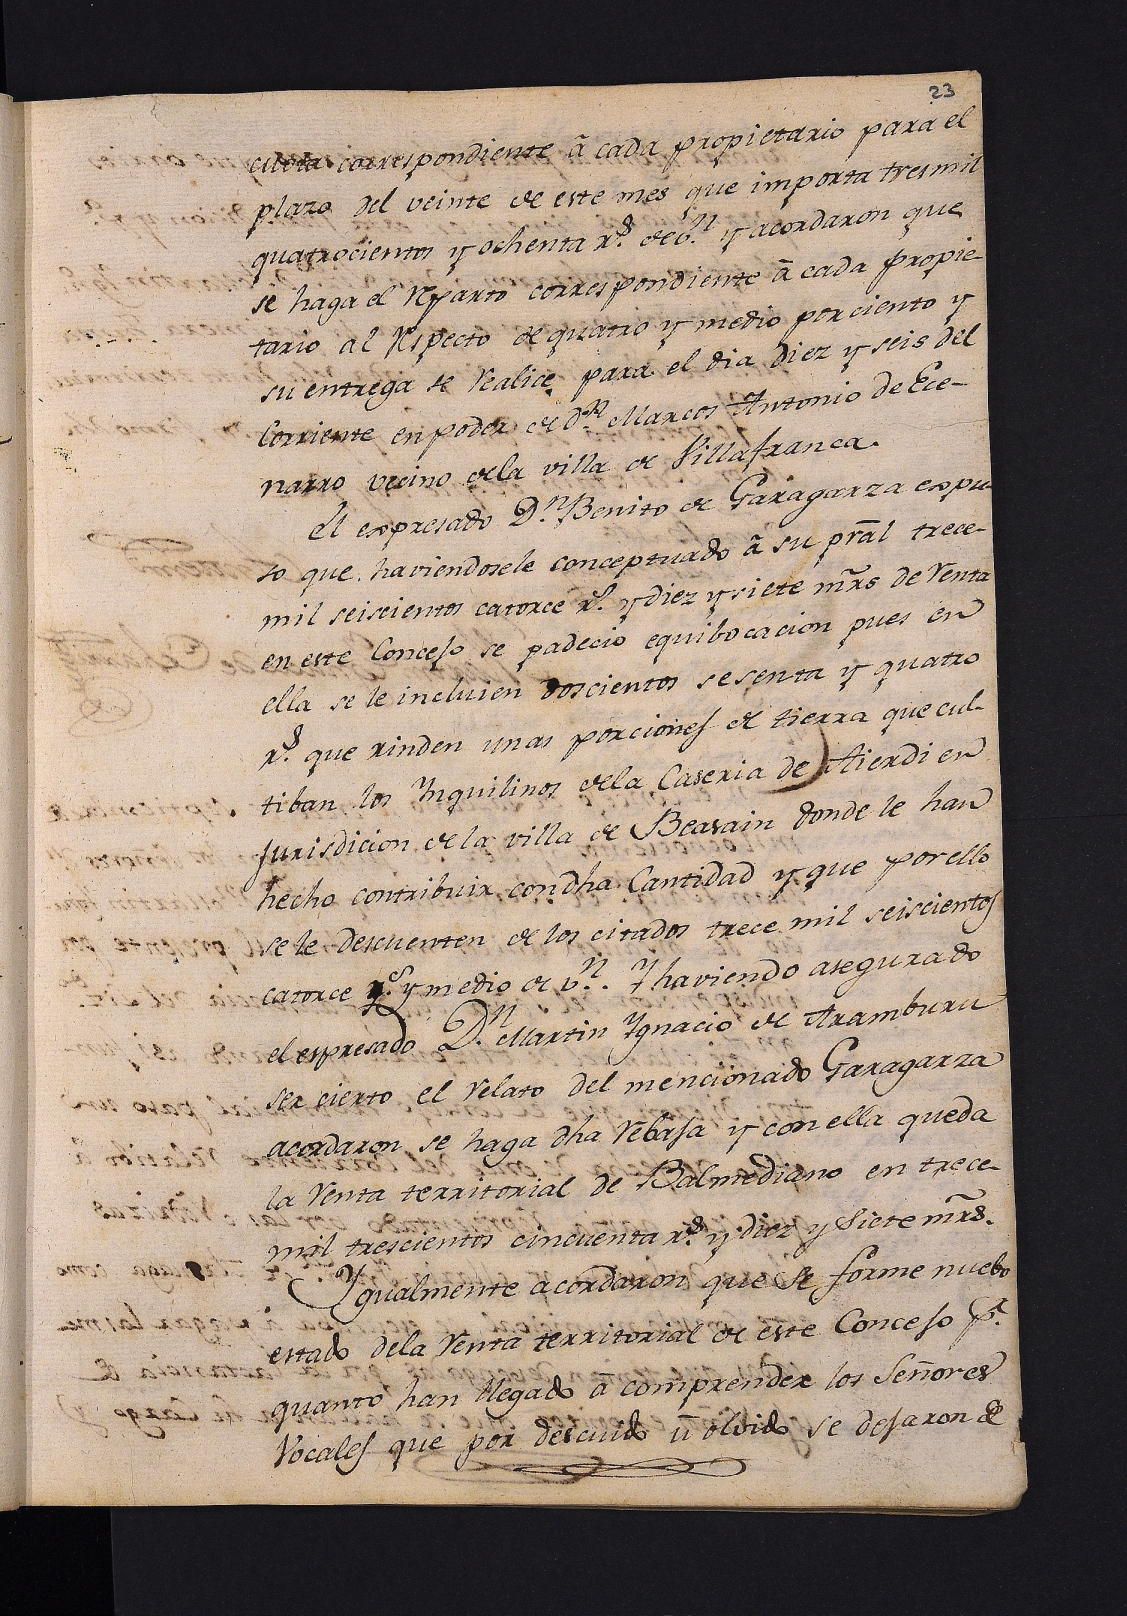 23
cuota correspondiente â cada propietario para el
plazo del veinte de este mes que importa tres mil
quatrocientos y ochenta r.s de v.n y acordaron que
se haga el Reparto correspondiente â cada propie-
tario al Respecto de quatro y medio por ciento y
su entrega se Realice para el dia diez y seis del
Corriente en poder de d.n Marcos Antonio de Ece-
narro vecino dela villa de Villafranca.
El expresado D.n Benito de Garagarza expu-
so que haviendosele conceptuado â su pral trece-
mil seiscientos catorce r.s y diez y siete mrs de Renta
en este Concejo se padecio equibocacion pues en
ella se le incluien doscientos sesenta y quatro
r.s que rinden unas porciones de tierra que cul-
tiban los Ynquilinos dela Caseria de Aierdi en
Jurisdicion de la villa de Beasain donde le han
hecho contribuir con dha Cantidad y que por ello
se le descuenten de los citados trece mil seiscientos
catorce r.s y medio de v.n. Y haviendo asegurado
el espresado D.n Martin Ygnacio de Aramburu
ser cierto el Relato del mencionado Garagarza
acordaron se haga dha Rebaja y con ella queda
la Renta territorial de Balmediano en trece-
mil trescientos cincuenta r.s y diez y siete mrs.
Ygualmente acordaron que se forme nuebo
estado dela Renta territorial de este Concejo p.r
quanto han llegado â comprender los Señores
Vocales que por descuido û olvido se dejaron de